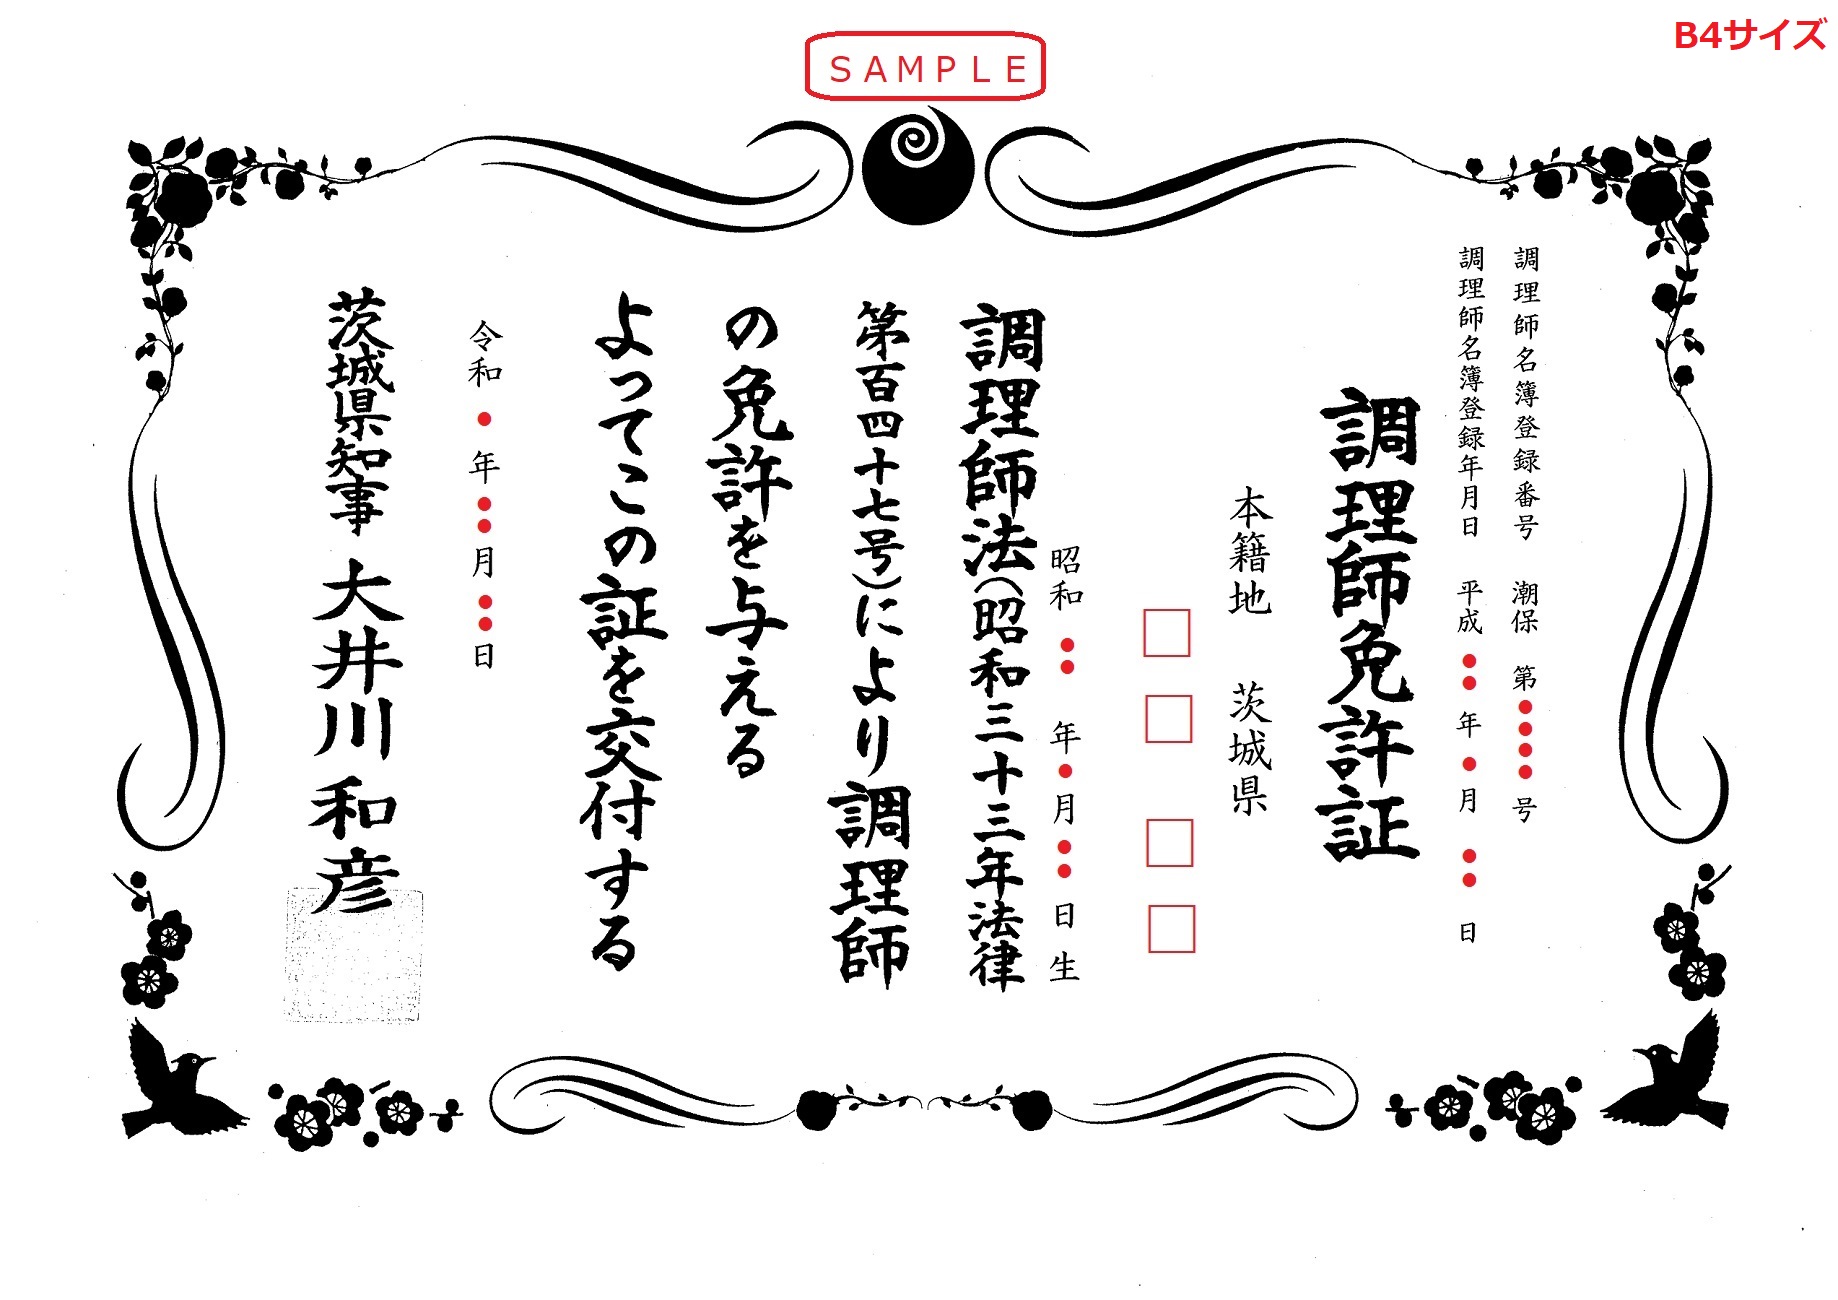 SAMPLE
B4サイズ
調理師名簿登録番号 潮保 第●●●●号
調理師名簿登録年月日 平成●●年●月●●日
調理師免許証
本籍地 茨城県
□□ □□
昭和●●年●月●●日生
調理師法(昭和三十三年法律
第百四十七号)により調理師
の免許を与える
よってこの証を交付する
令和●年●●月●●日
茨城県知事 大井川和彦